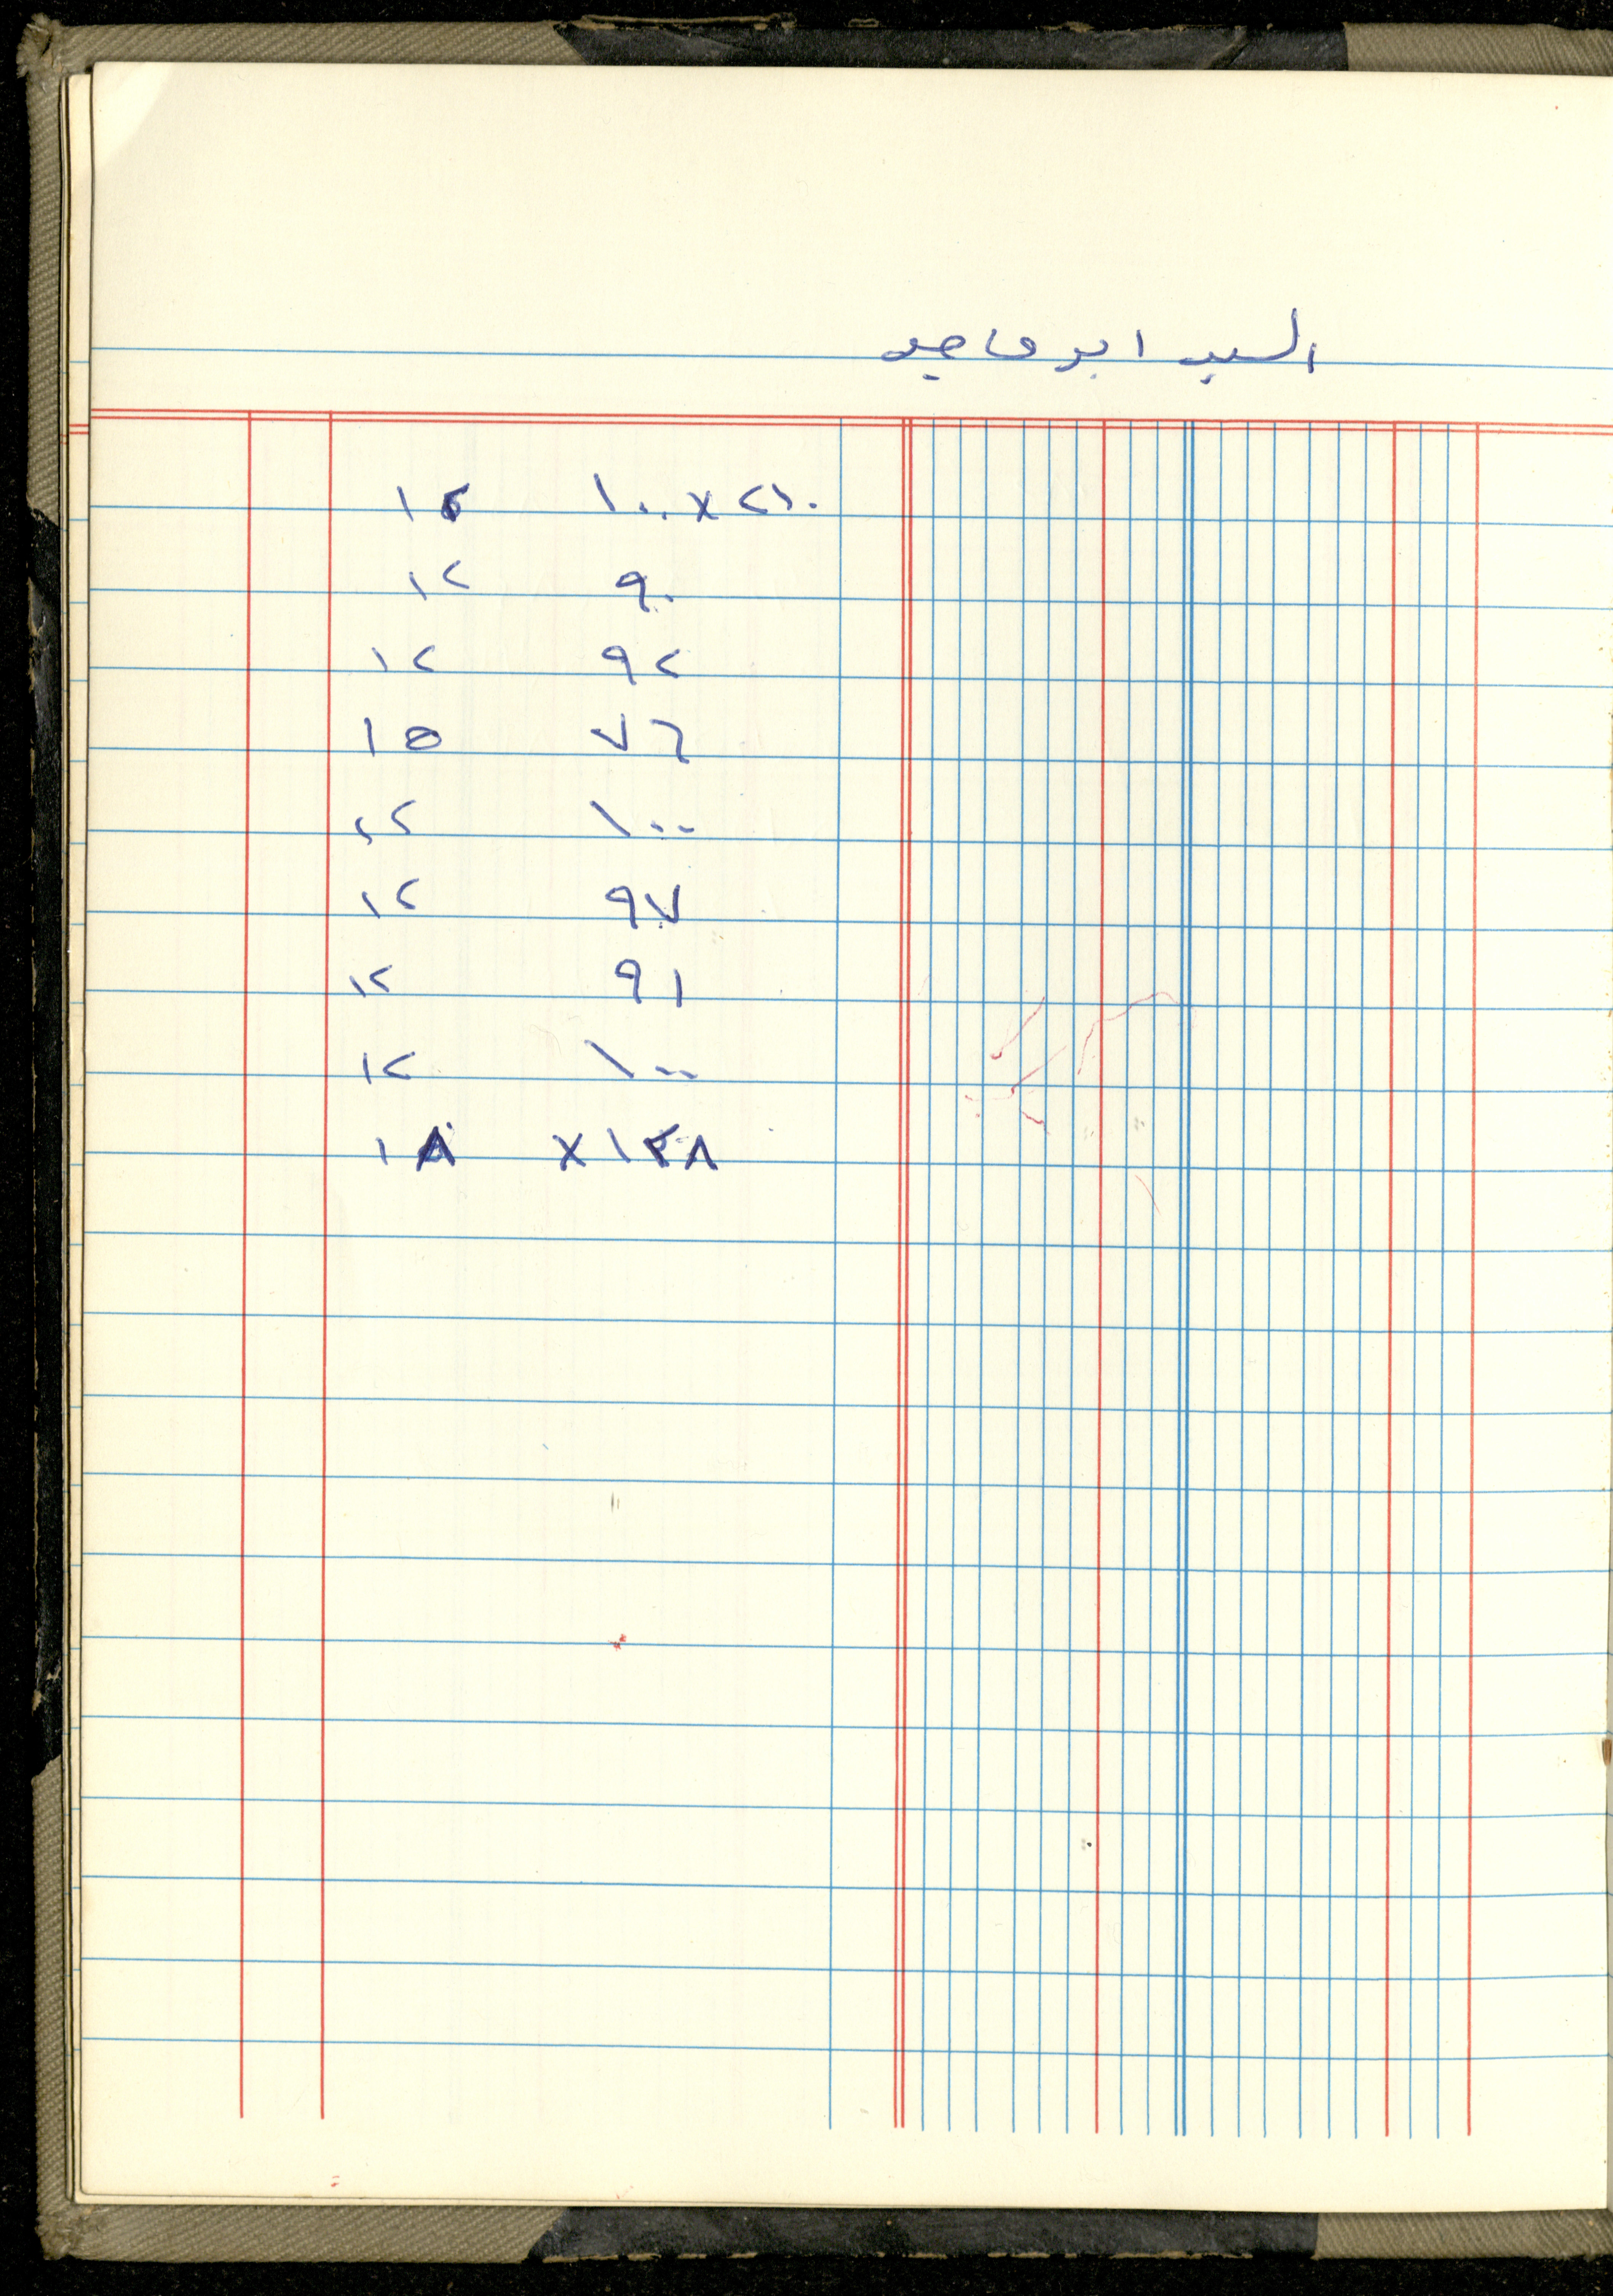 السيد ابو ماجد
١٢ ١٠٠ x ٢١٠
١٢ ٩٠
١٢ ٩٢
١٥ ٧٦
١٢ ١٠٠
١٢ ٩٧
١٢ ٩١
١٢ ١٠٠
١٨ x ١٢٨